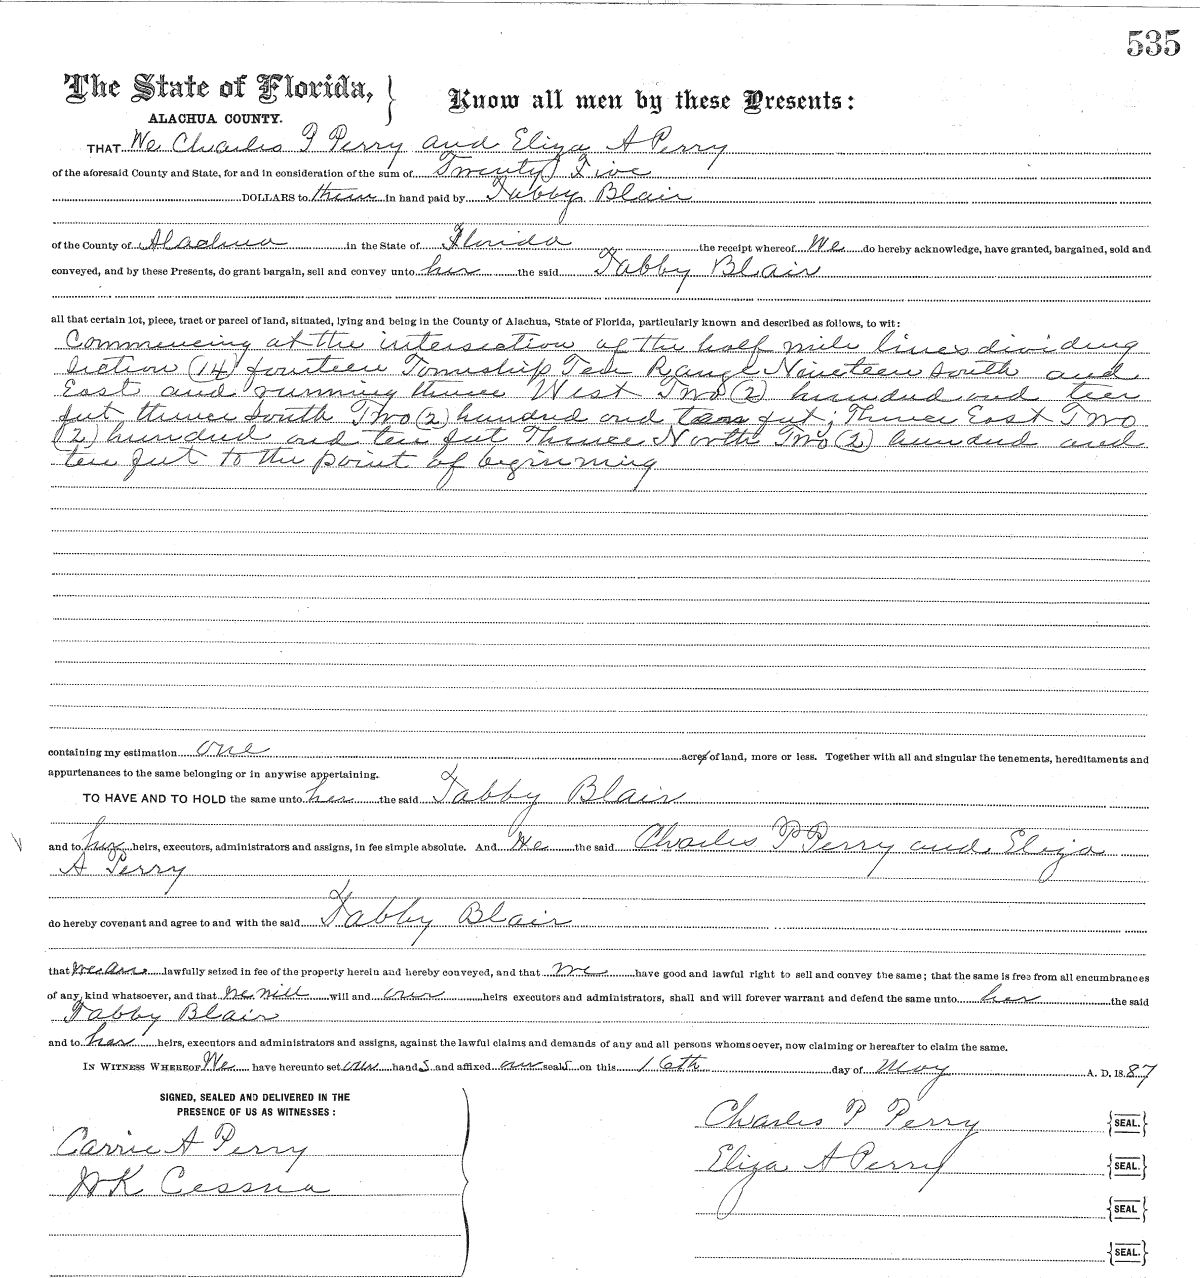 535
The State of Florida,
ALACHUA COUNTY.
Know all men by these Presents:
THAT We Charles P Perry and Eliza A Perry
of the aforesaid County and State, for and in consideration of the sum of Twenty Five
DOLLARS to them in hand paid by Tabby Blair
of the County of Alachua in the State of Florida the receipt whereof We do hereby acknowledge, have granted, bargained, sold and
conveyed, and by these Presents, do grant bargain, sell and convey unto her the said Tabby Blair
all that certain lot, piece, tract or parcel of land, situated, lying and being in the County of Alachua, State of Florida, particularly known and described as follows, to wit:
Commencing at the intersection of the half mile lines dividing
Section (14) fourteen Township Ten Range Nineteen South and
East and running thence West Two (2) hundred and ten
feet thence South Two (2) hundred and ten feet; Thence East Two
(2) hundred and ten feet Thence North Two (2) hundred and
ten feet to the point of beginning
containing my estimation one acres of land, more or less. Together with all and singular the tenements, hereditaments and
appurtenances to the same belonging or in anywise appertaining.
TO HAVE AND TO HOLD the same unto her the said Tabby Blair
and to her heirs, executors, administrators and assigns, in fee simple absolute. And We the said Charles P Perry and Eliza
A Perry
do hereby covenant and agree to and with the said Tabby Blair
that we are lawfully seized in fee of the property herein and hereby conveyed, and that we have good and lawful right to sell and convey the same; that the same is free from all encumbrances
of any kind whatsoever, and that we will will and our heirs executors and administrators, shall and will forever warrant and defend the same unto her the said
Tabby Blair
and to her heirs, executors and administrators and assigns, against the lawful claims and demands of any and all persons whomsoever, now claiming or hereafter to claim the same.
IN WITNESS WHEREOF We have hereunto set our hands and affixed our seals on this 16th day of May A. D. 1887
SIGNED, SEALED AND DELIVERED IN THE
PRESENCE OF US AS WITNESSES:
Carrie A Perry
WK Cessna
Charles P Perry {SEAL.}
Eliza A Perry {SEAL.}
{SEAL}
{SEAL.}